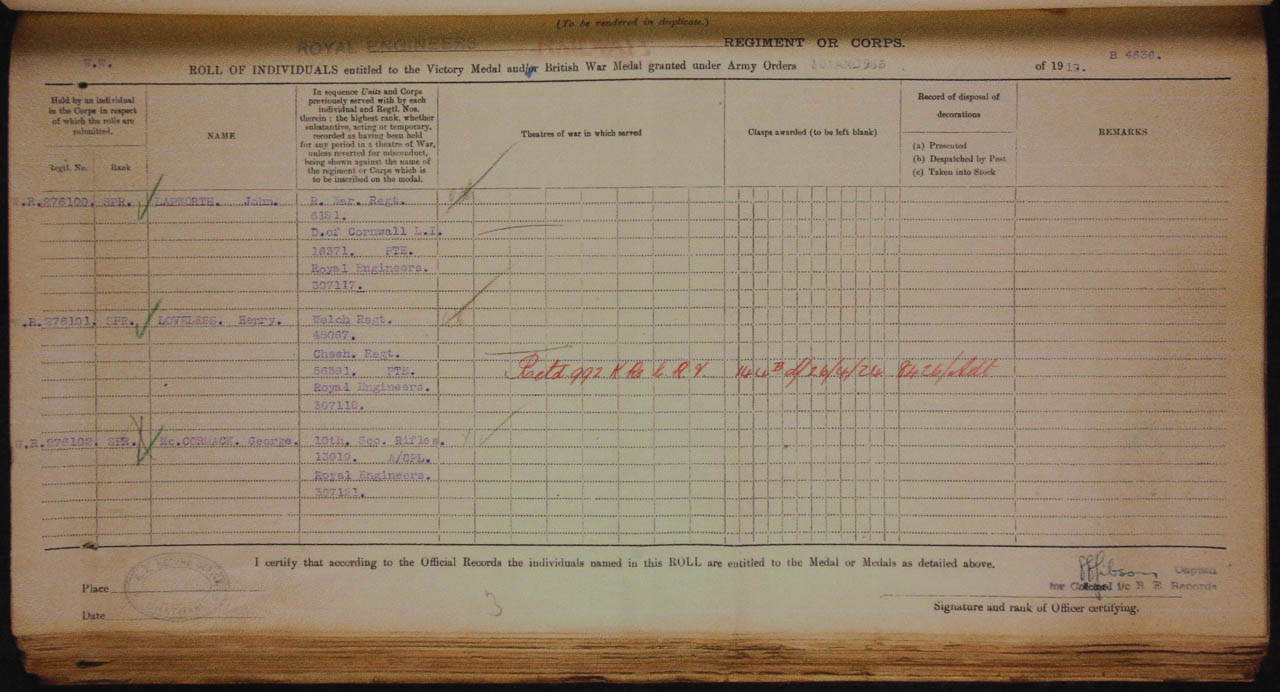 (To be rendered in duplicate.)
ROYAL ENGINEERS RAILWAYS REGIMENT OR CORPS.
W.W. B 4636.
ROLL OF INDIVIDUALS entitled to the Victory Medal and/or British War Medal granted under Army Orders 301 AND 966 of 1919.
Held by an individual in the Corps in respect of which the rolls are submitted.
Regtl. No. Rank
NAME
In sequence Units and Corps previously served with by each individual and Regtl. Nos. therein; the highest rank, whether substantive, acting or temporary, recorded as having been held for any period in a theatre of War, unless reverted for misconduct, being shown against the name of the regiment or Corps which is to be inscribed on the medal.
Theatres of war in which served
Clasps awarded (to be left blank)
Record of disposal of decorations
(a) Presented
(b) Despatched by Post
(c) Taken into Stock
REMARKS
W.R.276100. SPR. LAPWORTH. John. R. War. Regt.
6181.
D.of Cornwall L.I.
16371. PTE.
Royal Engineers.
307117.
W.R.276101. SPR. LOVELESS. Henry. Welch Regt.
45067.
Chesh. Regt.
56391. PTE.
Royal Engineers.
307118.
Retd 992 K R 144 B d/26/4/24 8426/Adt
W.R.276102. SPR. Mc.CORMACK. George. 10th. Sco. Rifles.
13919. A/CPL.
Royal Engineers.
307121.
I certify that according to the Official Records the individuals named in this ROLL are entitled to the Medal or Medals as detailed above.
Place
Date
3
Gibson Captain
for Colonel i/c R E Records
Signature and rank of Officer certifying.